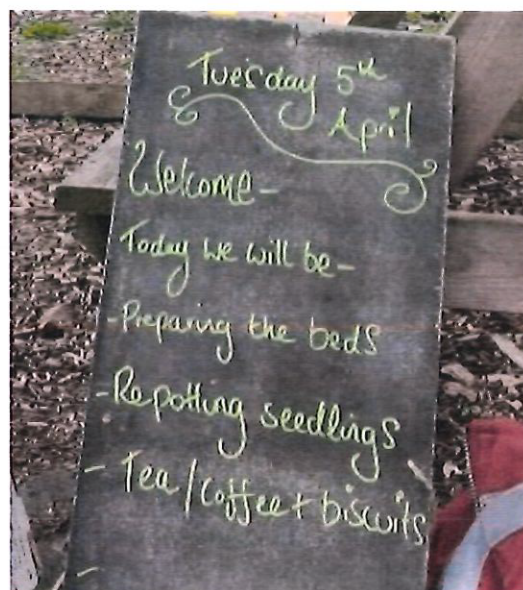 Tuesday 5th
April
Welcome-
Today we will be-
-Preparing the beds
-Repotting seedlings
- Tea/coffee + biscuits
-